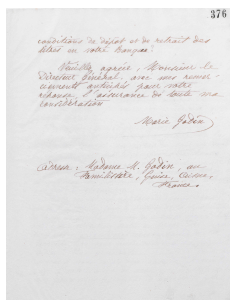 376
conditions de dépôt et de retrait des
titres en votre Banque.
Veuillez agréer, Monsieur le
Directeur Général, avec mes remer-
ciements anticipés pour votre
réponse, l'assurance de toute ma
considération
Marie Godin
Adresse : Madame M. Godin, au
Familistère, Guise, Aisne,
France.